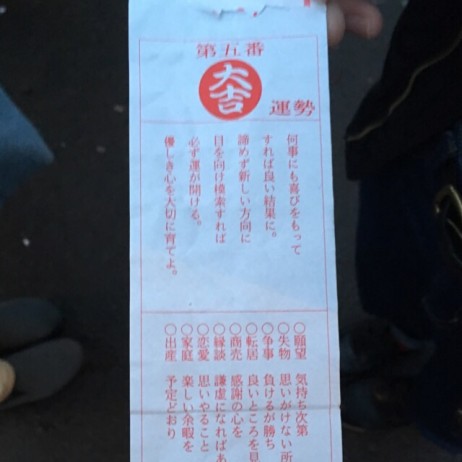 第五番
大吉
運勢
何事にも喜びをもって
すれば良い結果に。
諦めず新しい方向に
目を向け模索すれば
必ず運が開ける。
優しき心を大切に育てよ。
○願望 気持ち次第
○失物 思いがけない所
○争事 負けるが勝ち
○転居 良いところを見
○商売 感謝の心を
○縁談 謙虚になればあ
○恋愛 思いやること
○家庭 楽しい余暇を
○出産 予定どおり